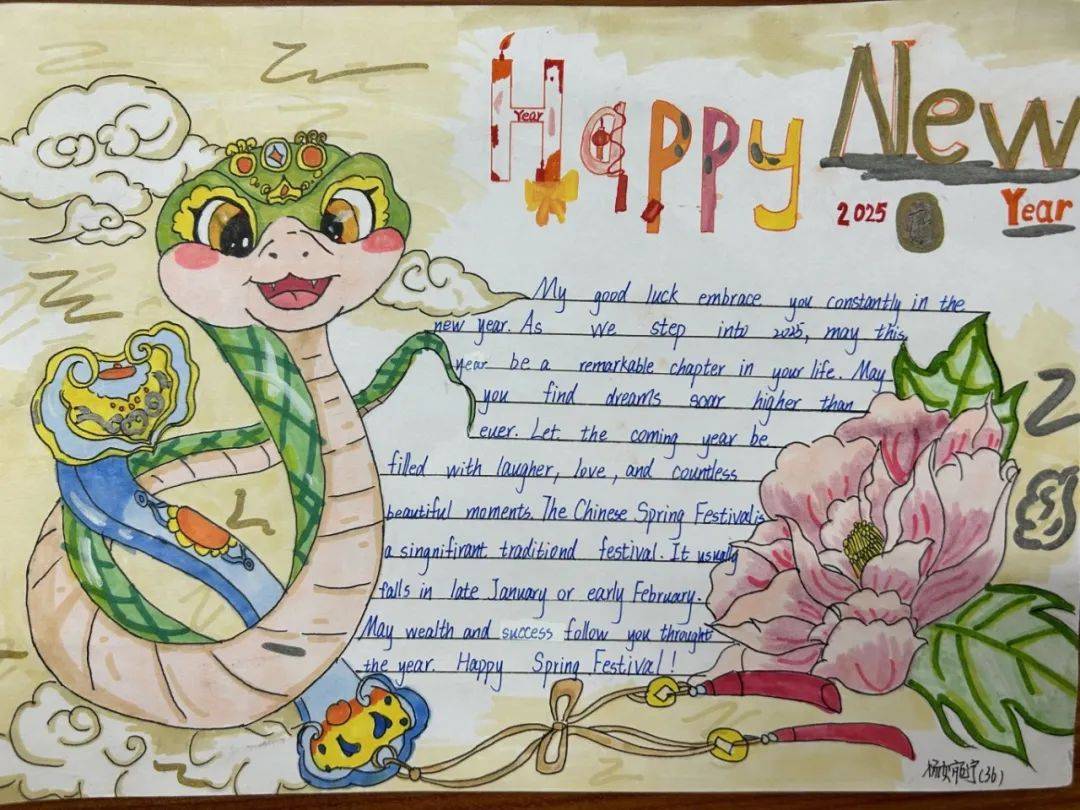 Happy New
Year
2025
Year
My good luck embrace you constantly in the
new year. As we step into 2025, may this
year be a remarkable chapter in your life. May
you find dreams soar higher than
ever. Let the coming year be
filled with laugher, love, and countless
beautiful moments. The Chinese Spring Festival is
a singnifirant traditiond festival. It usually
falls in late January or early February.
May wealth and success follow you throught
the year. Happy Spring Festival!
(36)